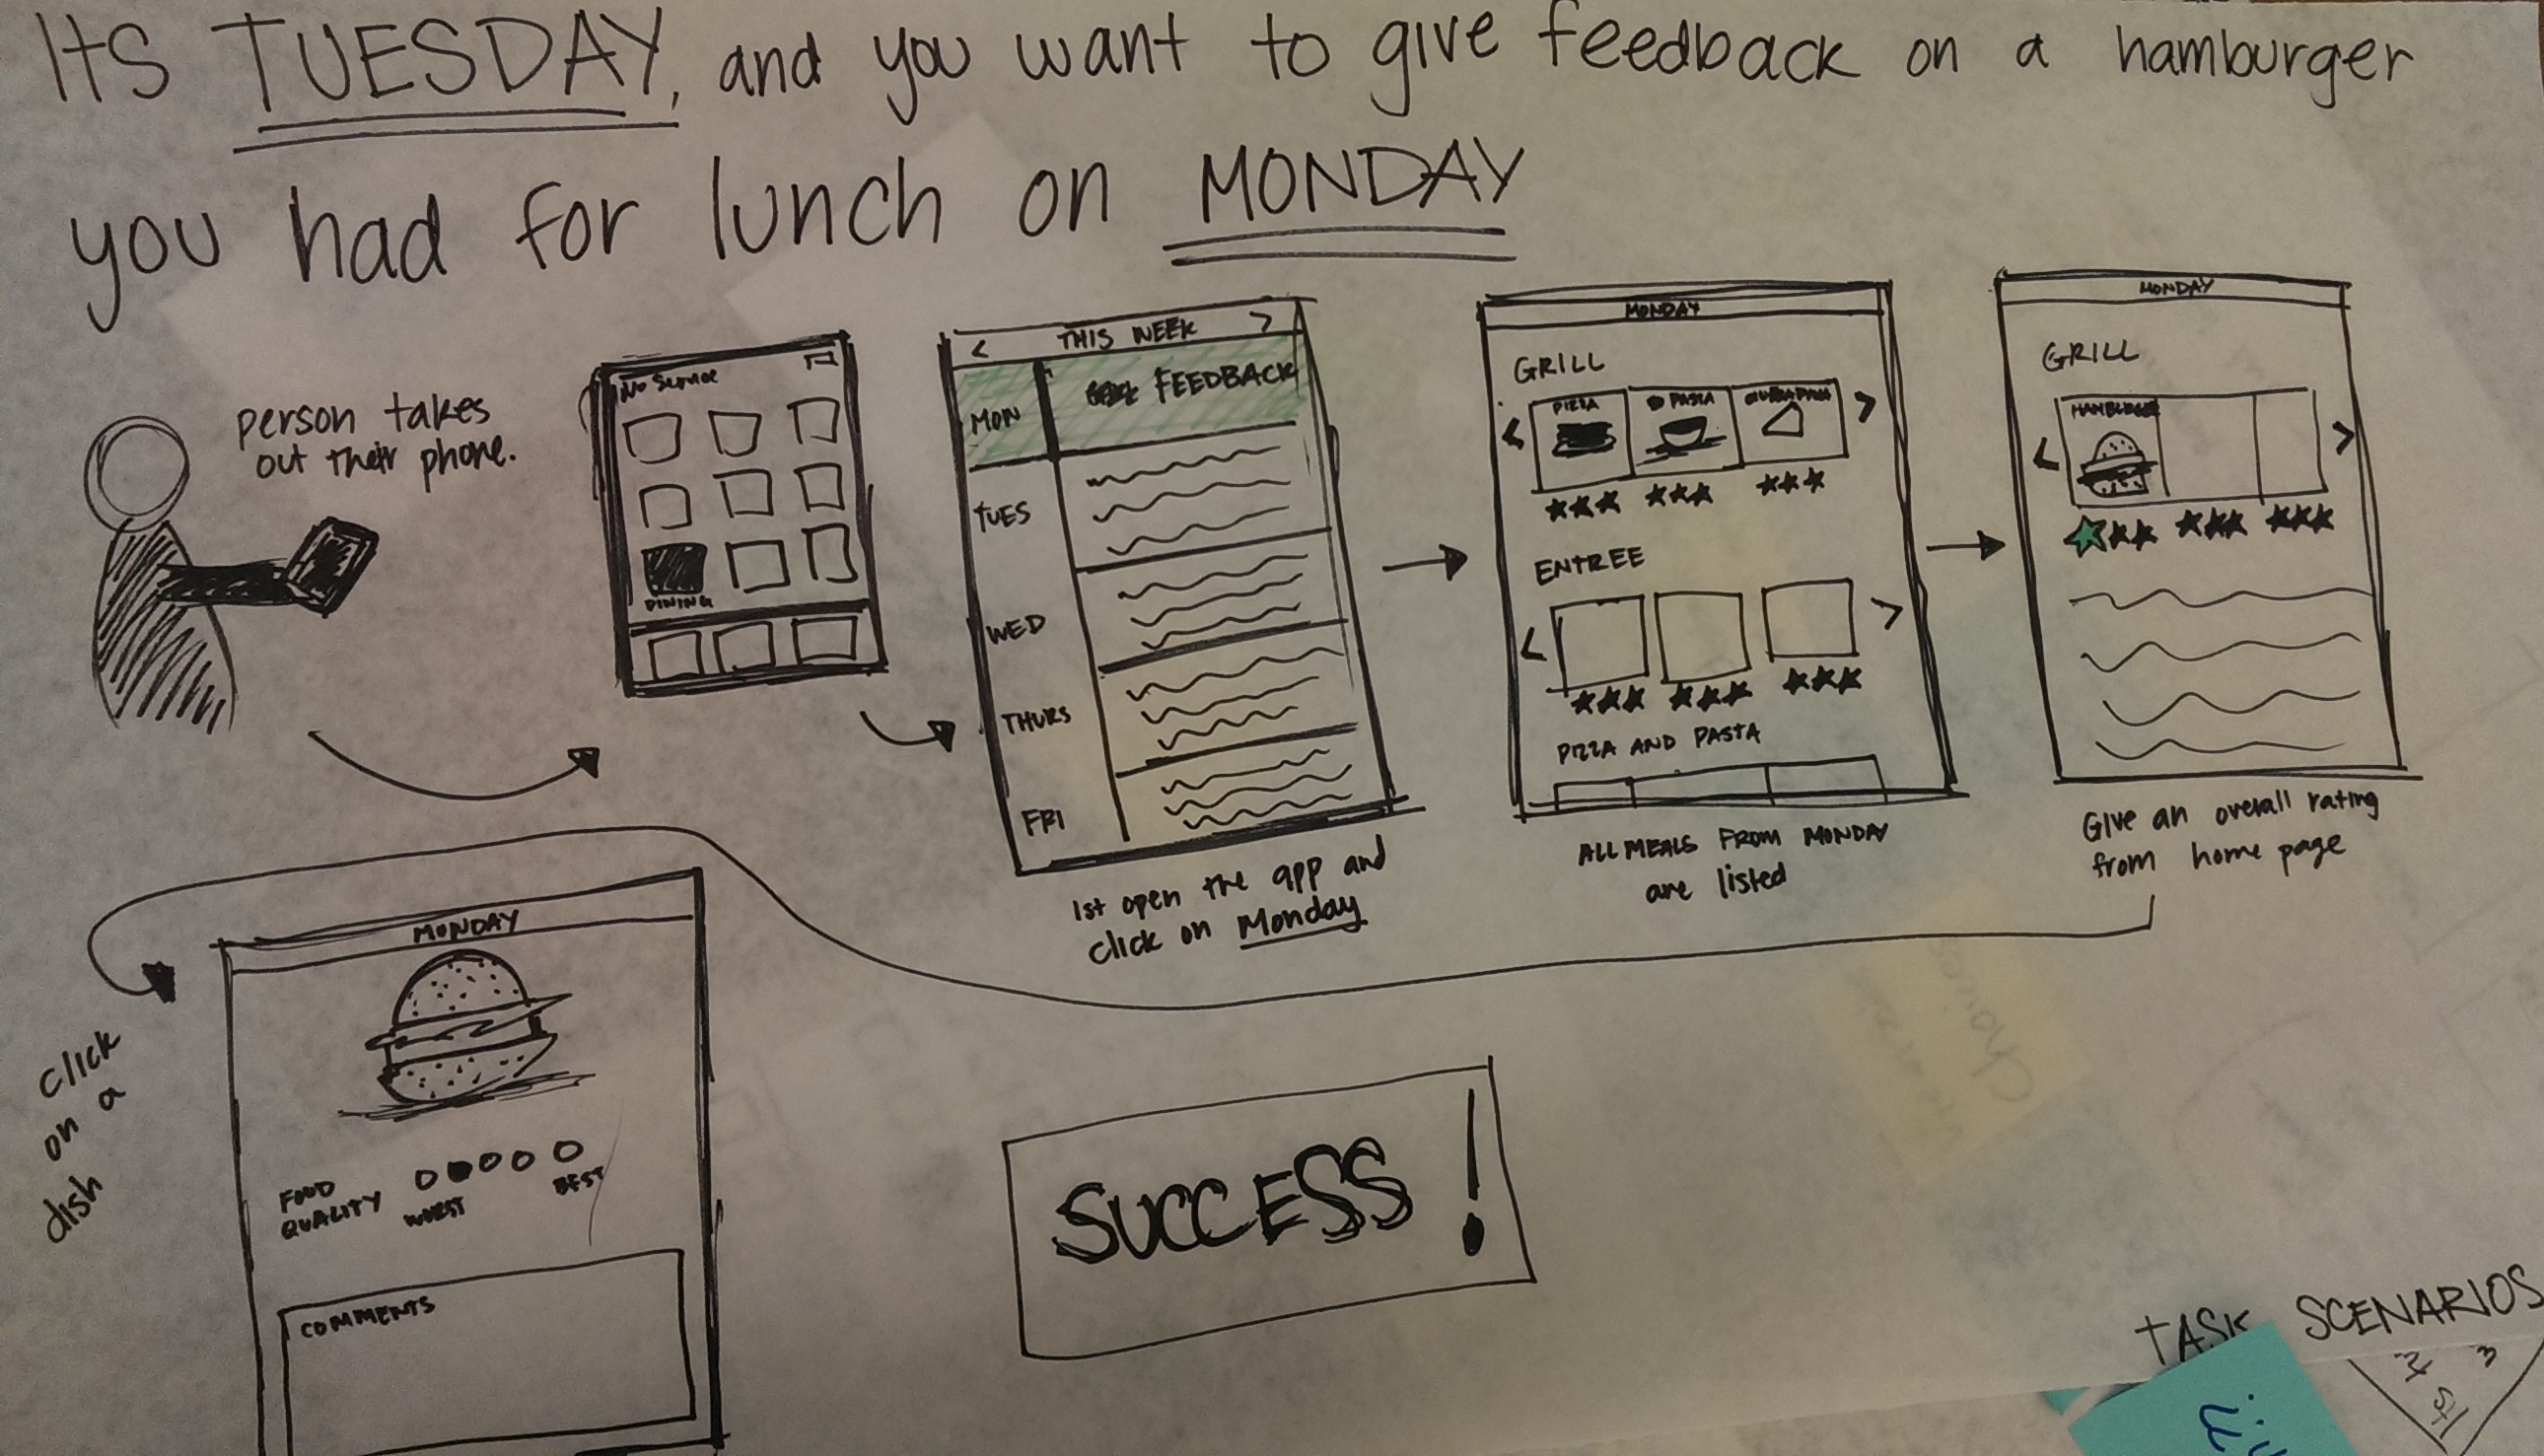 ItS TUESDAY, and you want to give feedback on a hamburger
you had for lunch on MONDAY
person takes
out their phone.
No Service
DINING
< THIS WEEK >
MON FEEDBACK
TUES
WED
THURS
FRI
1st open the app and
click on Monday
MONDAY
GRILL
PIZZA PASTA
< >
ENTREE
< >
PIZZA AND PASTA
ALL MEALS FROM MONDAY
are listed
MONDAY
GRILL
HAMBURGER
< >
Give an overall rating
from home page
click
on a
dish
MONDAY
FOOD
QUALITY
WORST BEST
COMMENTS
SUCCESS!
TASK SCENARIOS